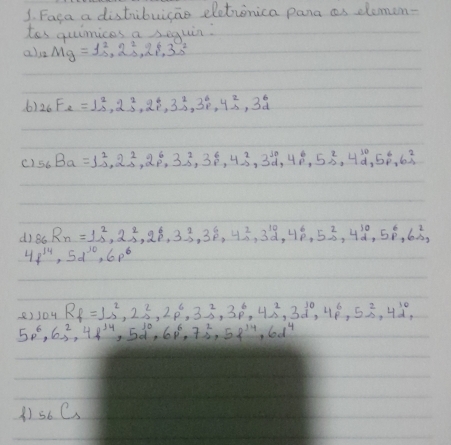 1. Faça a distribuição eletrônica para os elemen-
tos químicos a seguir:
a) 12 Mg = 1s², 2s², 2p⁶, 3s²
b) 26 Fe = 1s², 2s², 2p⁶, 3s², 3p⁶, 4s², 3d⁶
c) 56 Ba = 1s², 2s², 2p⁶, 3s², 3p⁶, 4s², 3d¹⁰, 4p⁶, 5s², 4d¹⁰, 5p⁶, 6s²
d) 86 Rn = 1s², 2s², 2p⁶, 3s², 3p⁶, 4s², 3d¹⁰, 4p⁶, 5s², 4d¹⁰, 5p⁶, 6s²,
4f¹⁴, 5d¹⁰, 6p⁶
e) 104 Rf = 1s², 2s², 2p⁶, 3s², 3p⁶, 4s², 3d¹⁰, 4p⁶, 5s², 4d¹⁰,
5p⁶, 6s², 4f¹⁴, 5d¹⁰, 6p⁶, 7s², 5f¹⁴, 6d⁴
f) 56 Cs